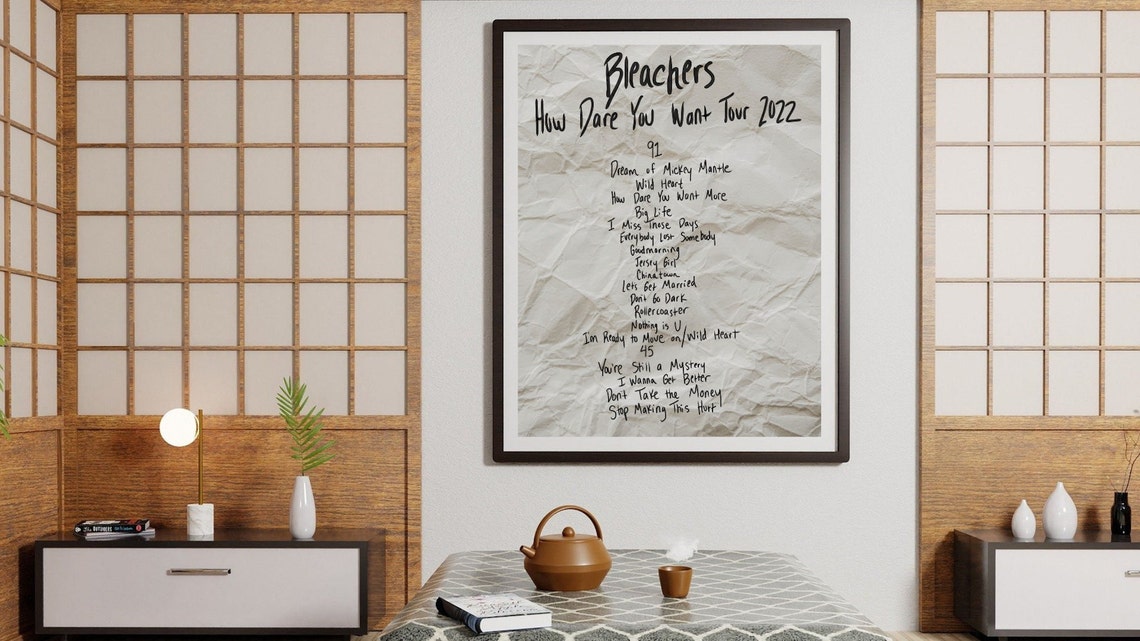 Bleachers
How Dare You Want Tour 2022
91
Dream of Mickey Mantle
Wild Heart
How Dare You Want More
Big Life
I Miss Those Days
Everybody Lost Somebody
Goodmorning
Jersey Girl
Chinatown
Lets Get Married
Dont Go Dark
Rollercoaster
Nothing is U
I'm Ready to Move on/Wild Heart
45
You're Still a Mystery
I Wanna Get Better
Dont Take the Money
Stop Making This Hurt
The OUTSIDERS